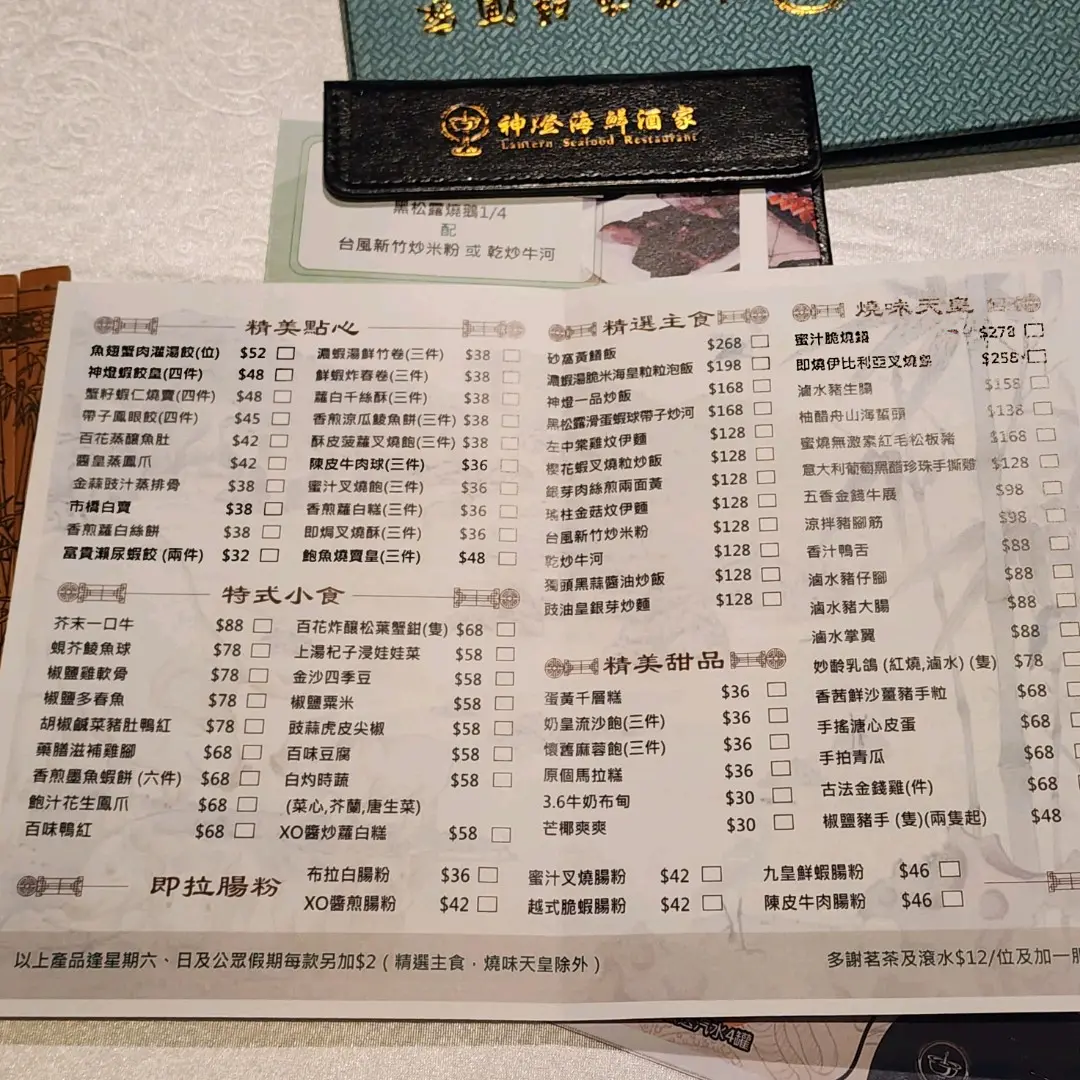 神燈海鮮酒家
Lantern Seafood Restaurant
黑松露燒鵝1/4
配
台風新竹炒米粉 或 乾炒牛河
精美點心
魚翅蟹肉灌湯餃(位) $52
神燈蝦餃皇(四件) $48
蟹籽蝦仁燒賣(四件) $48
帶子鳳眼餃(四件) $45
百花蒸釀魚肚 $42
醬皇蒸鳳爪 $42
金蒜豉汁蒸排骨 $38
市橋白賣 $38
香煎蘿白絲餅 $38
富貴瀨尿蝦餃 (兩件) $32
濃蝦湯鮮竹卷(三件) $38
鮮蝦炸春卷(三件) $38
蘿白千絲酥(三件) $38
香煎涼瓜鯪魚餅(三件) $38
酥皮菠蘿叉燒飽(三件) $38
陳皮牛肉球(三件) $36
蜜汁叉燒飽(三件) $36
香煎蘿白糕(三件) $36
即焗叉燒酥(三件) $36
鮑魚燒賣皇(三件) $48
特式小食
芥末一口牛 $88
蜆芥鯪魚球 $78
椒鹽雞軟骨 $78
椒鹽多春魚 $78
胡椒鹹菜豬肚鴨紅 $78
藥膳滋補雞腳 $68
香煎墨魚蝦餅 (六件) $68
鮑汁花生鳳爪 $68
百味鴨紅 $68
百花炸釀松葉蟹鉗(隻) $68
上湯杞子浸娃娃菜 $58
金沙四季豆 $58
椒鹽粟米 $58
豉蒜虎皮尖椒 $58
百味豆腐 $58
白灼時蔬 $58
(菜心,芥蘭,唐生菜)
XO醬炒蘿白糕 $58
精選主食
砂窩黃鱔飯 $268
濃蝦湯脆米海皇粒粒泡飯 $198
神燈一品炒飯 $168
黑松露滑蛋蝦球帶子炒河 $168
左中棠雞炆伊麵 $128
櫻花蝦叉燒粒炒飯 $128
銀芽肉絲煎兩面黃 $128
瑤柱金菇炆伊麵 $128
台風新竹炒米粉 $128
乾炒牛河 $128
獨頭黑蒜醬油炒飯 $128
豉油皇銀芽炒麵 $128
精美甜品
蛋黃千層糕 $36
奶皇流沙飽(三件) $36
懷舊麻蓉飽(三件) $36
原個馬拉糕 $36
3.6牛奶布甸 $30
芒椰爽爽 $30
燒味天皇
蜜汁脆燒鱔 $278
即燒伊比利亞叉燒 $258
滷水豬生腸 $158
柚醋舟山海蜇頭 $138
蜜燒無激素紅毛松板豬 $168
意大利葡萄黑醋珍珠手撕雞 $128
五香金錢牛展 $98
涼拌豬腳筋 $98
香汁鴨舌 $88
滷水豬仔腳 $88
滷水豬大腸 $88
滷水掌翼 $88
妙齡乳鴿 (紅燒,滷水) (隻) $78
香茜鮮沙薑豬手粒 $68
手搖溏心皮蛋 $68
手拍青瓜 $68
古法金錢雞(件) $68
椒鹽豬手 (隻)(兩隻起) $48
即拉腸粉
布拉白腸粉 $36
XO醬煎腸粉 $42
蜜汁叉燒腸粉 $42
越式脆蝦腸粉 $42
九皇鮮蝦腸粉 $46
陳皮牛肉腸粉 $46
以上產品逢星期六、日及公眾假期每款另加$2 ( 精選主食 , 燒味天皇除外 )
多謝茗茶及滾水$12/位及加一
汽水4罐